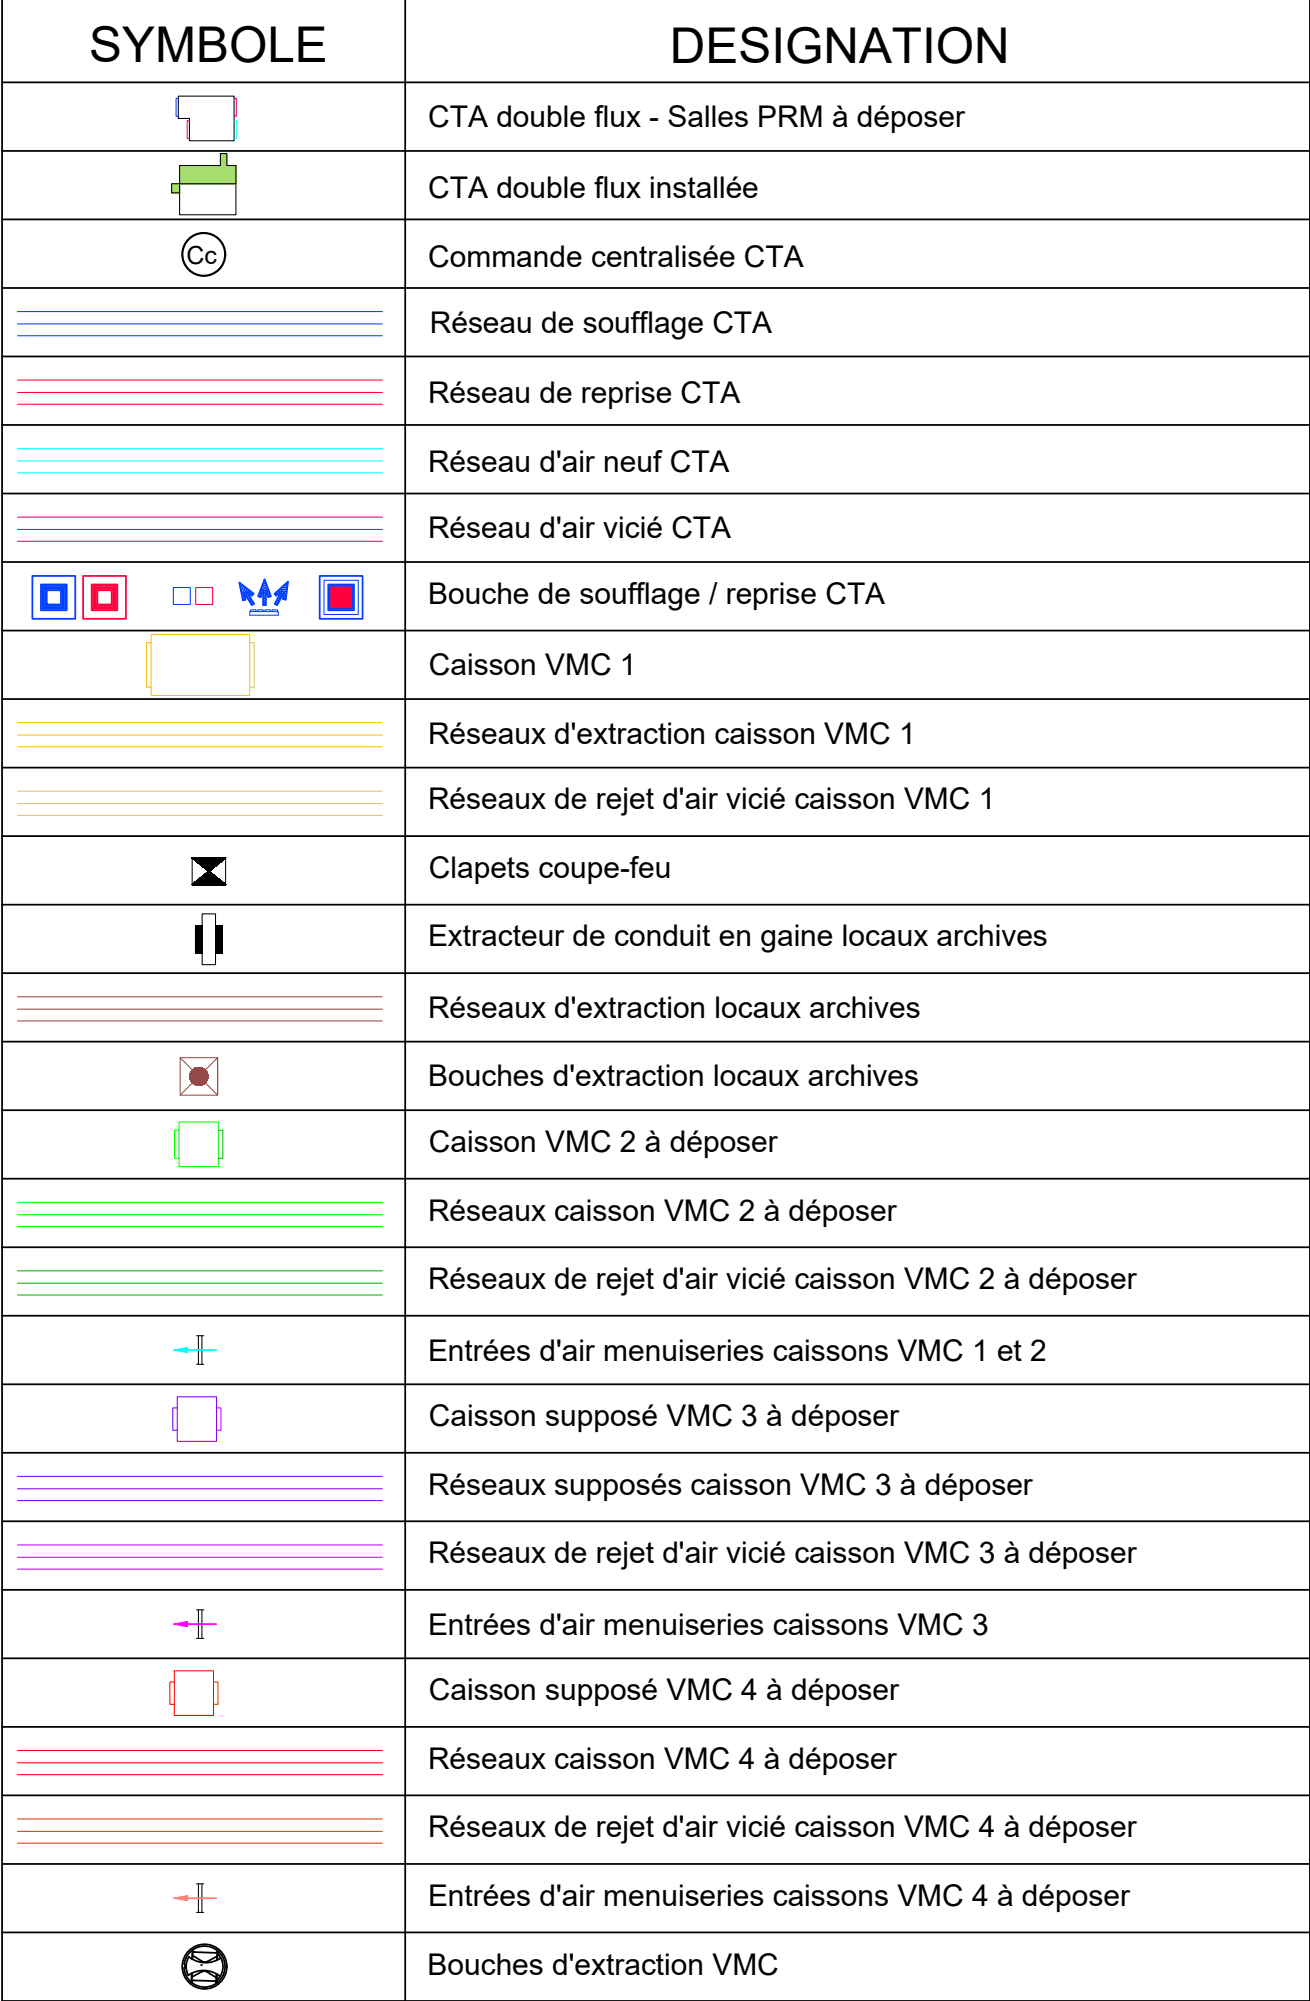 SYMBOLE DESIGNATION
CTA double flux - Salles PRM à déposer
CTA double flux installée
Cc Commande centralisée CTA
Réseau de soufflage CTA
Réseau de reprise CTA
Réseau d'air neuf CTA
Réseau d'air vicié CTA
Bouche de soufflage / reprise CTA
Caisson VMC 1
Réseaux d'extraction caisson VMC 1
Réseaux de rejet d'air vicié caisson VMC 1
Clapets coupe-feu
Extracteur de conduit en gaine locaux archives
Réseaux d'extraction locaux archives
Bouches d'extraction locaux archives
Caisson VMC 2 à déposer
Réseaux caisson VMC 2 à déposer
Réseaux de rejet d'air vicié caisson VMC 2 à déposer
Entrées d'air menuiseries caissons VMC 1 et 2
Caisson supposé VMC 3 à déposer
Réseaux supposés caisson VMC 3 à déposer
Réseaux de rejet d'air vicié caisson VMC 3 à déposer
Entrées d'air menuiseries caissons VMC 3
Caisson supposé VMC 4 à déposer
Réseaux caisson VMC 4 à déposer
Réseaux de rejet d'air vicié caisson VMC 4 à déposer
Entrées d'air menuiseries caissons VMC 4 à déposer
Bouches d'extraction VMC